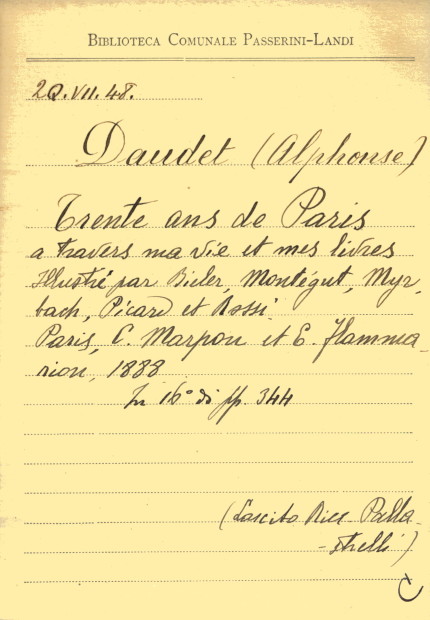 BIBLIOTECA COMUNALE PASSERINI-LANDI
2Q.VII.48.
Daudet (Alphonse)
Trente ans de Paris
a travers ma vie et mes livres
Illustré par Bieler, Montégut, Myr
bach, Picard et Rossi
Paris, C. Marpon et E. Flamma
rion, 1888
In 16° di pp. 344
(Lascito Ricc Palla
-strelli)
C